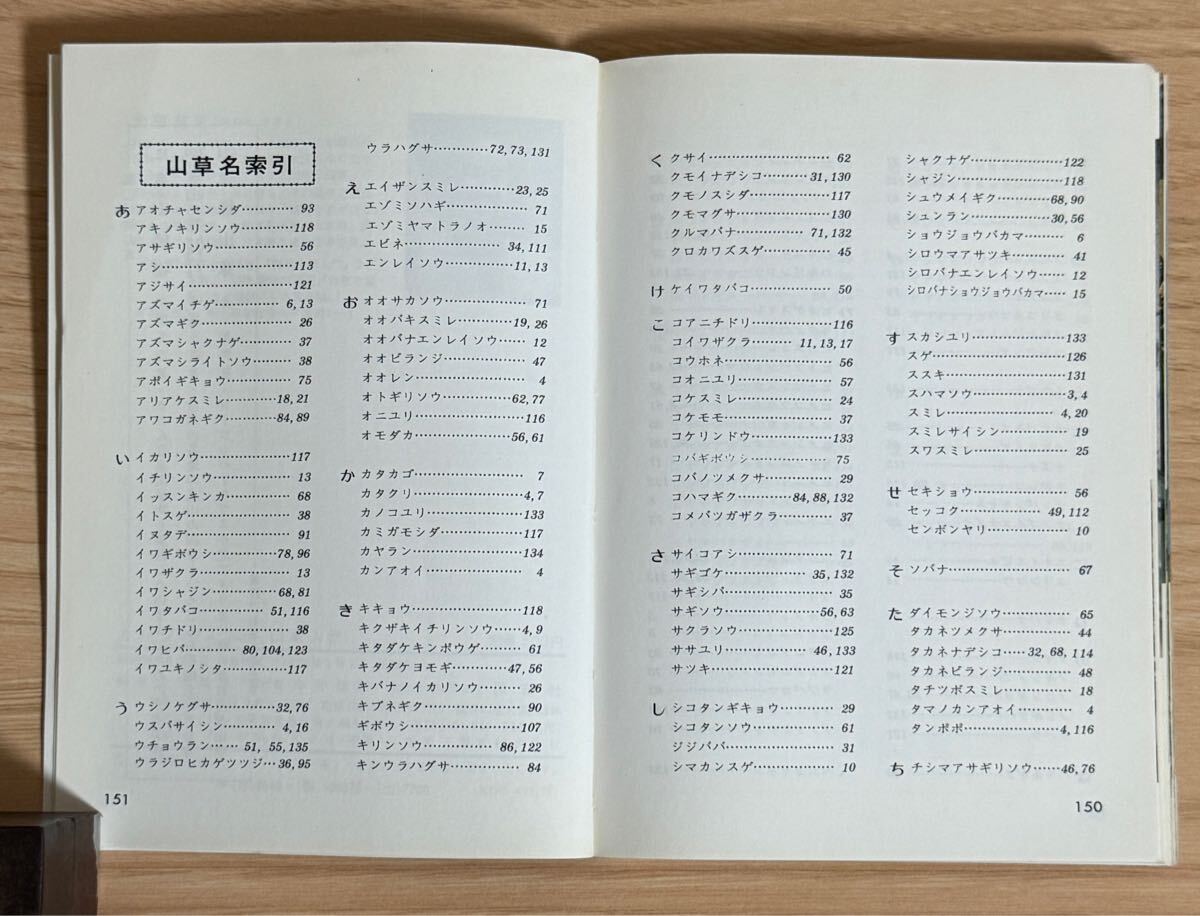 山草名索引
あ アオチャセンシダ………… 93
アキノキリンソウ…………118
アサギリソウ……………… 56
アシ…………………………113
アジサイ……………………121
アズマイチゲ…………… 6,13
アズマギク………………… 26
アズマシャクナゲ………… 37
アズマシライトソウ……… 38
アポイギキョウ…………… 75
アリアケスミレ…………18,21
アワコガネギク…………84,89
い イカリソウ…………………117
イチリンソウ……………… 13
イッスンキンカ…………… 68
イトスゲ…………………… 38
イヌタデ…………………… 91
イワギボウシ……………78,96
イワザクラ………………… 13
イワシャジン……………68,81
イワタバコ……………51,116
イワチドリ………………… 38
イワヒバ…………80,104,123
イワユキノシタ……………117
う ウシノケグサ……………32,76
ウスバサイシン………… 4,16
ウチョウラン…… 51, 55,135
ウラジロヒカゲツツジ…36,95
ウラハグサ…………72,73,131
え エイザンスミレ…………23,25
エゾミソハギ……………… 71
エゾミヤマトラノオ……… 15
エビネ…………………34,111
エンレイソウ……………11,13
お オオサカソウ……………… 71
オオバキスミレ…………19,26
オオバナエンレイソウ…… 12
オオビランジ……………… 47
オオレン…………………… 4
オトギリソウ……………62,77
オニユリ……………………116
オモダカ…………………56,61
か カタカゴ…………………… 7
カタクリ…………………4,7
カノコユリ…………………133
カミガモシダ………………117
カヤラン……………………134
カンアオイ………………… 4
き キキョウ……………………118
キクザキイチリンソウ……4,9
キタダケキンポウゲ……… 61
キタダケヨモギ…………47,56
キバナノイカリソウ……… 26
キブネギク………………… 90
ギボウシ……………………107
キリンソウ……………86,122
キンウラハグサ…………… 84
151
く クサイ……………………… 62
クモイナデシコ………31,130
クモノスシダ………………117
クモマグサ…………………130
クルマバナ……………71,132
クロカワズスゲ…………… 45
け ケイワタバコ……………… 50
こ コアニチドリ………………116
コイワザクラ………11,13,17
コウホネ…………………… 56
コオニユリ………………… 57
コケスミレ………………… 24
コケモモ…………………… 37
コケリンドウ………………133
コバギボウシ……………… 75
コバノツメクサ…………… 29
コハマギク…………84,88,132
コメバツガザクラ………… 37
さ サイコアシ………………… 71
サギゴケ………………35,132
サギシバ…………………… 35
サギソウ…………………56,63
サクラソウ…………………125
ササユリ………………46,133
サツキ………………………121
し シコタンギキョウ………… 29
シコタンソウ……………… 61
ジジババ…………………… 31
シマカンスゲ……………… 10
シャクナゲ…………………122
シャジン……………………118
シュウメイギク…………68,90
シュンラン………………30,56
ショウジョウバカマ……… 6
シロウマアサツキ………… 41
シロバナエンレイソウ…… 12
シロバナショウジョウバカマ…… 15
す スカシユリ…………………133
スゲ…………………………126
ススキ………………………131
スハマソウ………………3,4
スミレ……………………4,20
スミレサイシン…………… 19
スワスミレ………………… 25
せ セキショウ………………… 56
セッコク………………49,112
センボンヤリ……………… 10
そ ソバナ……………………… 67
た ダイモンジソウ…………… 65
タカネツメクサ…………… 44
タカネナデシコ……32,68,114
タカネビランジ…………… 48
タチツボスミレ…………… 18
タマノカンアオイ………… 4
タンポポ………………4,116
ち チシマアサギリソウ……46,76
150